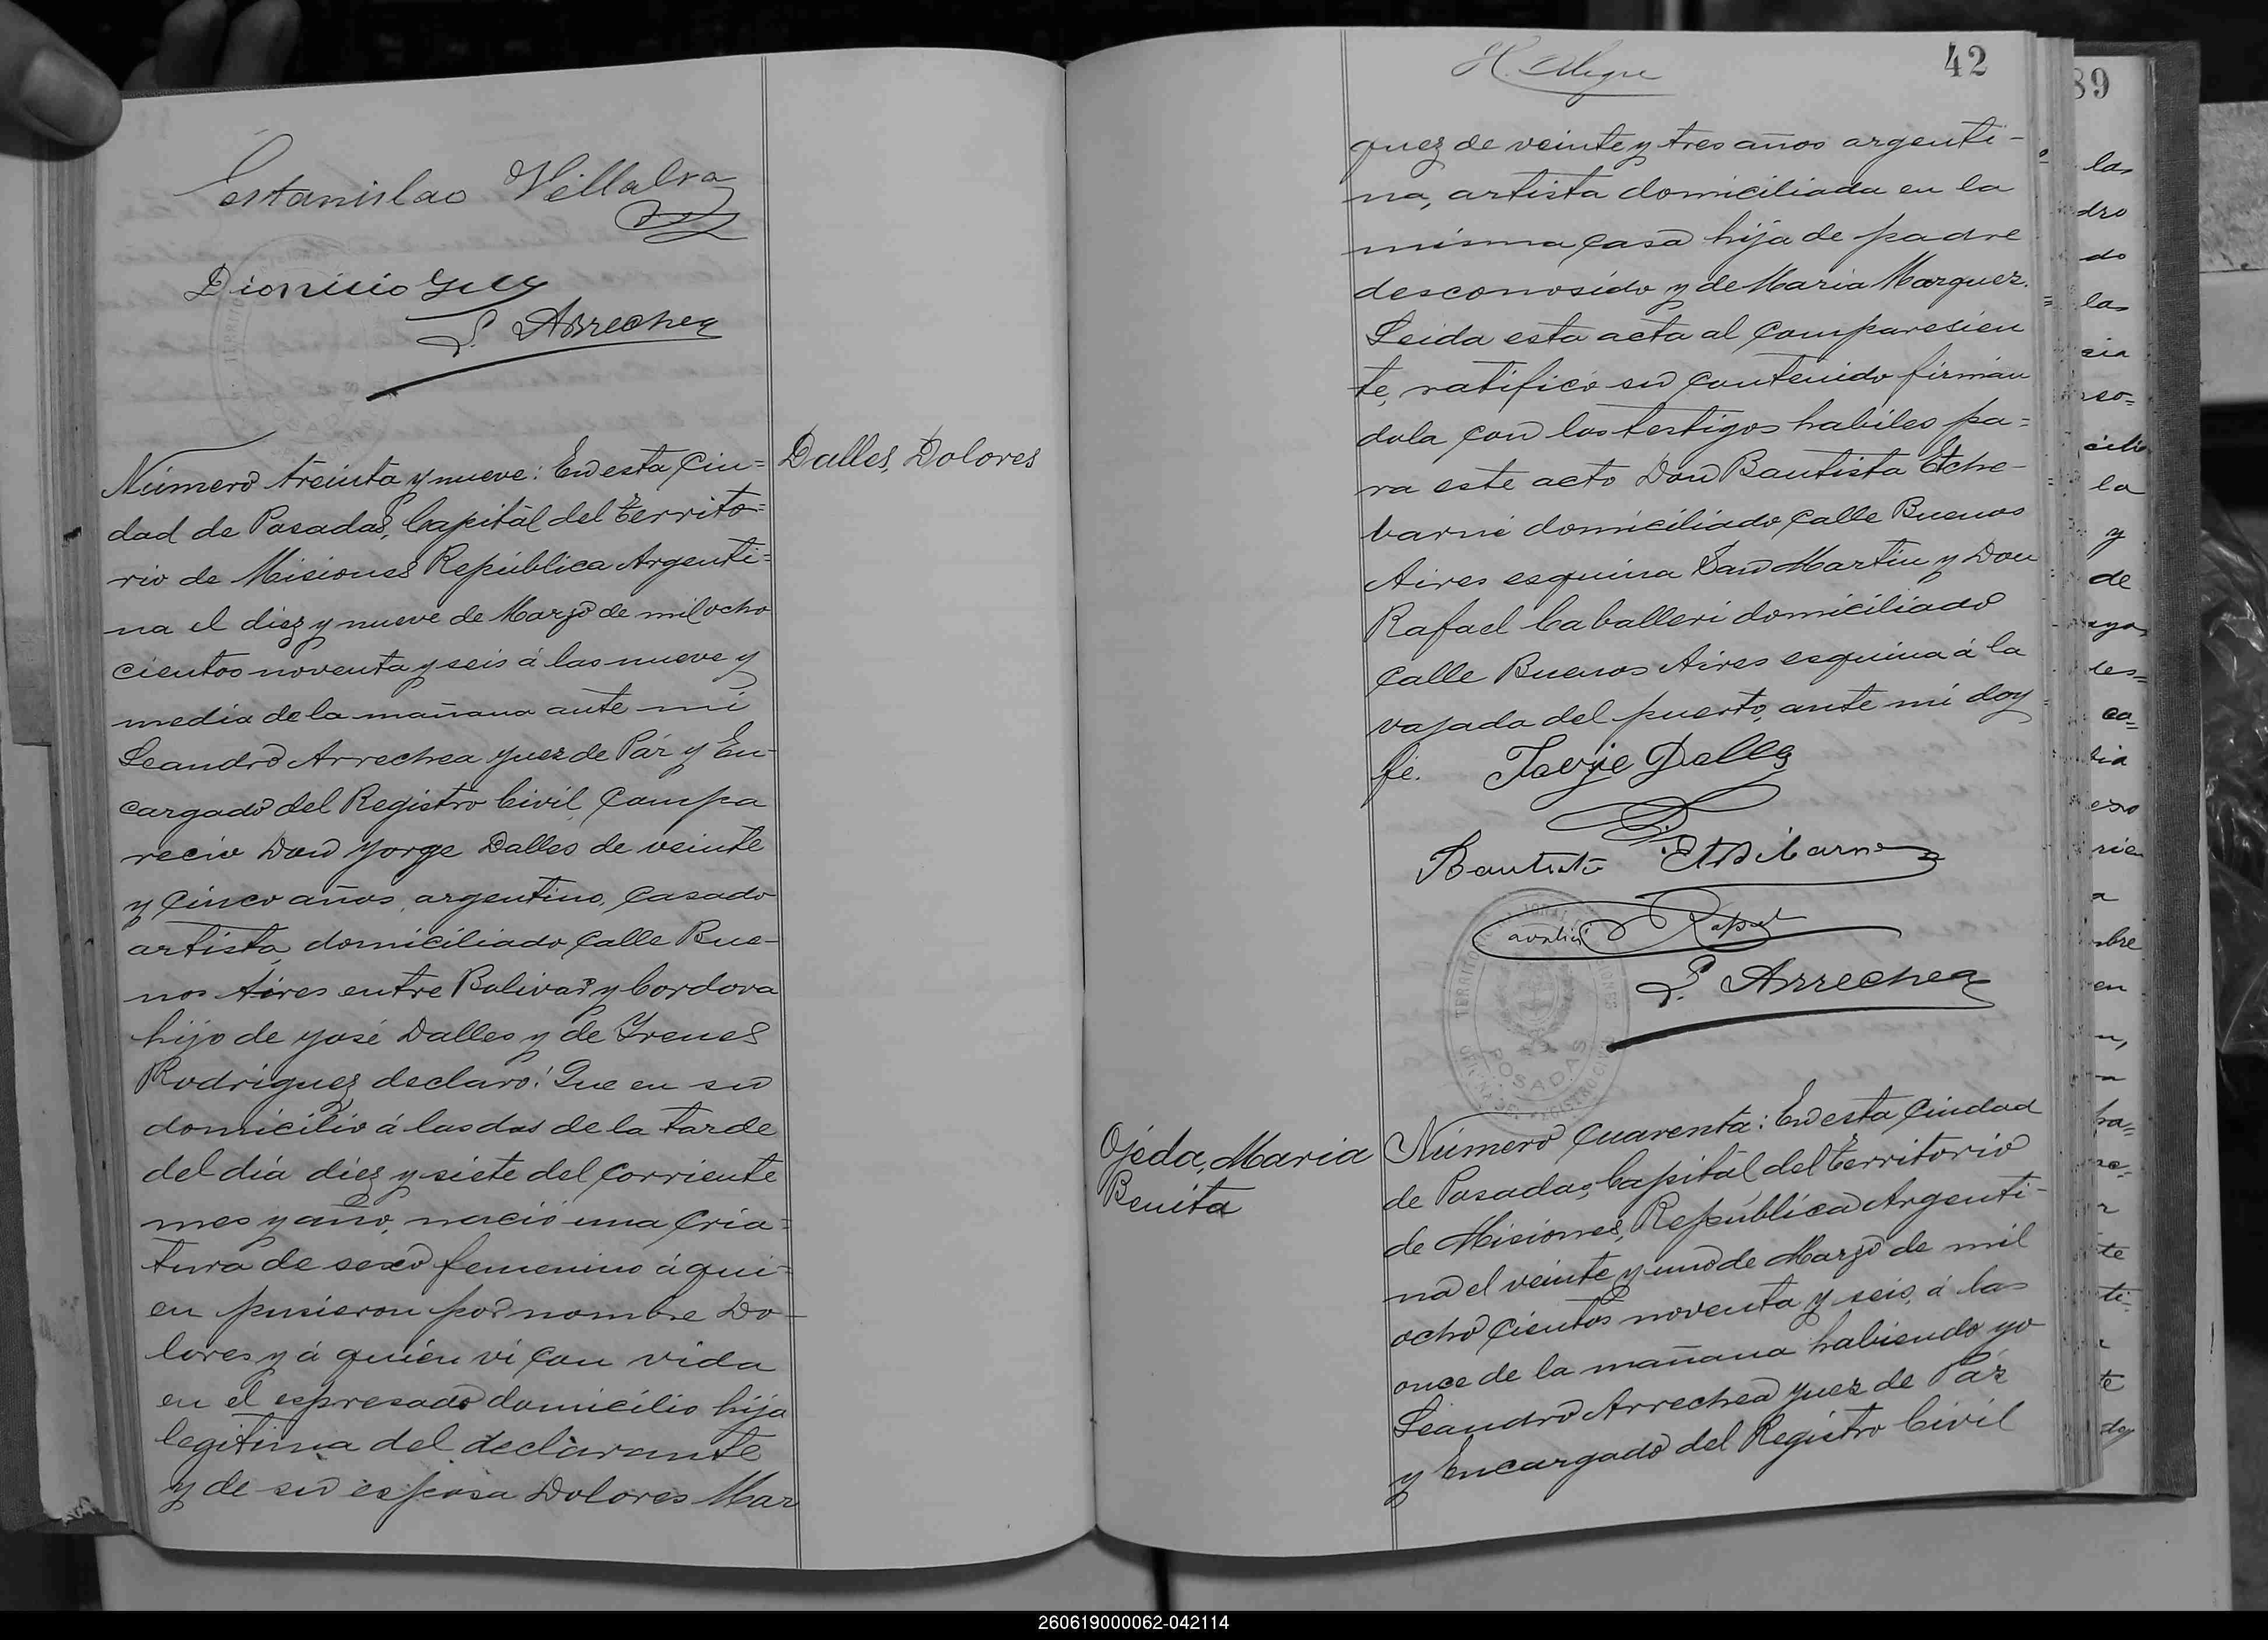 Estanislao Villalva
Dionicio Gil
L. Arrechea
Dalles, Dolores
Número treinta y nueve: En esta Ciu=
dad de Posadas, Capital del Territo=
rio de Misiones República Argenti=
na el diez y nueve de Marzo de mil ocho
cientos noventa y seis á las nueve y
media de la mañana ante mi
Leandro Arrechea Juez de Paz y En-
cargado del Registro Civil, Compa
recio Don Jorge Dalles de veinte
y cinco años, argentino, casado
artista, domiciliado calle Bue-
nos Aires entre Bolivar y Cordova
hijo de José Dalles y de Yrenes
Rodriguez declaro: Que en su
domicilio á las dos de la tarde
del dia diez y siete del corriente
mes y año, nació una cria=
tura de sexo femenino á qui=
en pusieron por nombre Do-
lores y á quién vi con vida
en el espresado domicilio hija
legitima del declarante
y de su esposa Dolores Mar
H. Alegre
42
quez de veinte y tres años argenti-
na, artista domiciliada en la
misma casa hija de padre
desconosido y de Maria Marquez.
Leida esta acta al comparesien
te, ratificó su contenido firman
dola con los testigos habiles pa=
ra este acto Don Bautista Etche-
barni domiciliado calle Buenos
Aires esquina San Martin y Don
Rafael Caballeri domiciliado
calle Buenos Aires esquina á la
vajada del puerto, ante mi doy
fé.
Jorje Dalles
Bautista
Rafael
L. Arrechea
POSADAS
Ojeda, Maria
Benita
Número Cuarenta: En esta Ciudad
de Posadas, Capital del Territorio
de Misiones, República Argenti-
na el veinte y uno de Marzo de mil
ocho cientos noventa y seis, á las
once de la mañana habiendo yo
Leandro Arrechea Juez de Paz
y Encargado del Registro Civil
89
las
dro
do
las
cia
so=
cilio
la
y
de
des=
ca=
tia
exo
rien
a
mbre
en
n,
te
ti=
te
doy
260619000062-042114